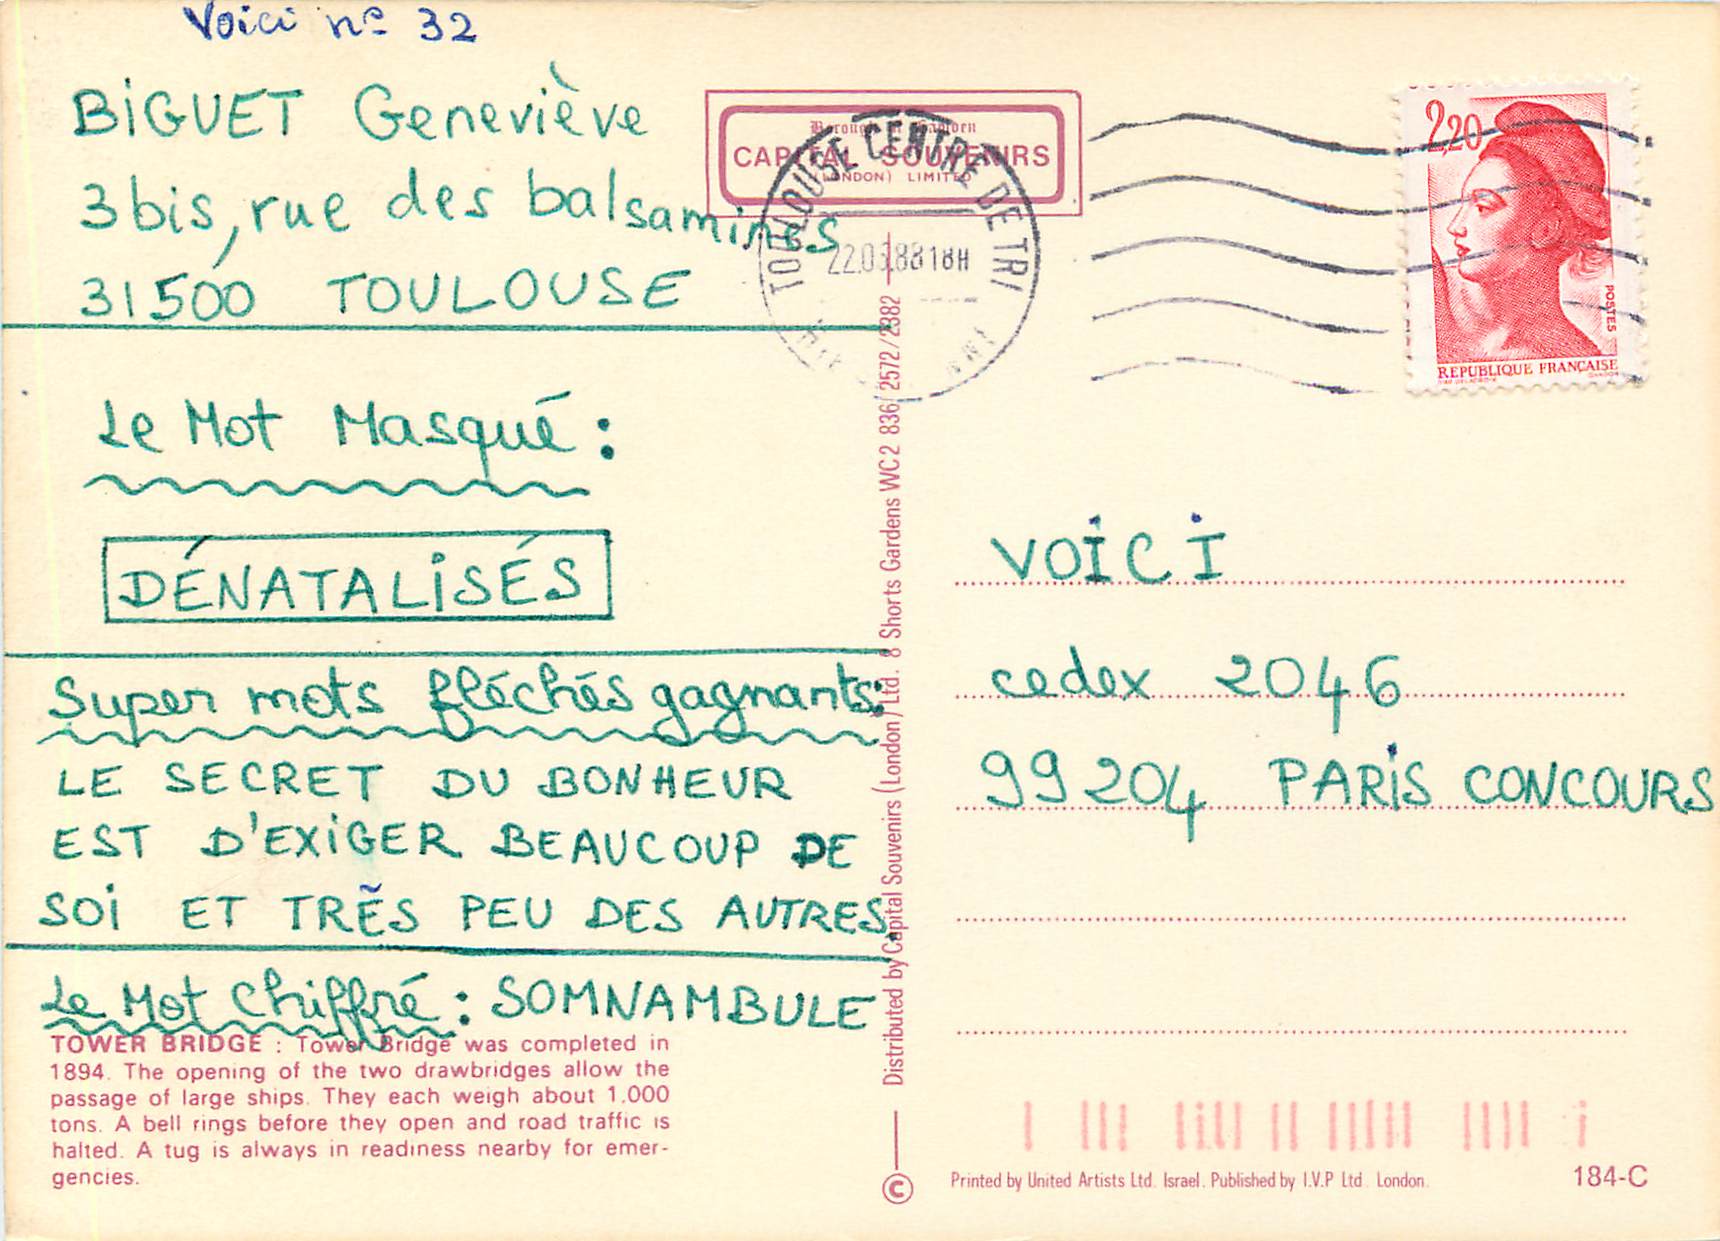 Voici nº 32
BIGUET Geneviève
3bis, rue des balsamines
31500 TOULOUSE
Le Mot Masqué :
DÉNATALISÉS
Super mots fléchés gagnants:
LE SECRET DU BONHEUR
EST D'EXIGER BEAUCOUP DE
SOI ET TRÈS PEU DES AUTRES.
Le Mot Chiffré : SOMNAMBULE
TOWER BRIDGE : Tower Bridge was completed in
1894. The opening of the two drawbridges allow the
passage of large ships. They each weigh about 1.000
tons. A bell rings before they open and road traffic is
halted. A tug is always in readiness nearby for emer-
gencies.
Borough of Camden
CAPITAL SOUVENIRS
(LONDON) LIMITED
TOULOUSE CENTRE DE TRI
88 18H
Distributed by Capital Souvenirs (London) Ltd. 8 Shorts Gardens WC2 836/2572/2382
©
2,20
POSTES
REPUBLIQUE FRANÇAISE
VOICI
cedex 2046
99204 PARIS CONCOURS
Printed by United Artists Ltd. Israel. Published by I.V.P Ltd. London.
184-C